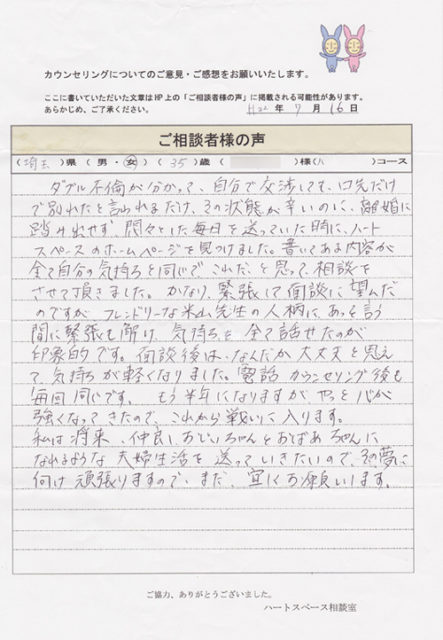 カウンセリングについてのご意見・ご感想をお願いいたします。
ここに書いていただいた文章はHP上の「ご相談者様の声」に掲載される可能性があります。
あらかじめ、ご了承ください。
H22年 7月 16日
ご相談者様の声
(埼玉)県(男・女)(35)歳( )様( )コース
ダブル不倫が分かって、自分で交渉しても、口先だけ
で別れたと言われるだけ、その状態が辛いのに、離婚に
踏み出せず、悶々とした毎日を送っていた時に、ハート
スペースのホームページを見つけました。書いてある内容が
全て自分の気持ちと同じで、これだ、と思って、相談を
させて頂きました。かなり、緊張して面談に望んだ
のですが、フレンドリーな米山先生の人柄に、あっと言う
間に緊張も解け、気持ちを全て話せたのが
印象的です。面談後は、なんだか大丈夫と思え
て、気持ちが軽くなりました。電話カウンセリング後も
毎回同じです。もう半年になりますが、やっと心が
強くなってきたので、これから戦いに入ります。
私は将来、仲良しおじいちゃんとおばあちゃんに
なれるような夫婦生活を送っていきたいので、その夢に
向け頑張りますので、まだ、宜しくお願いします。
ご協力、ありがとうございました。
ハートスペース相談室